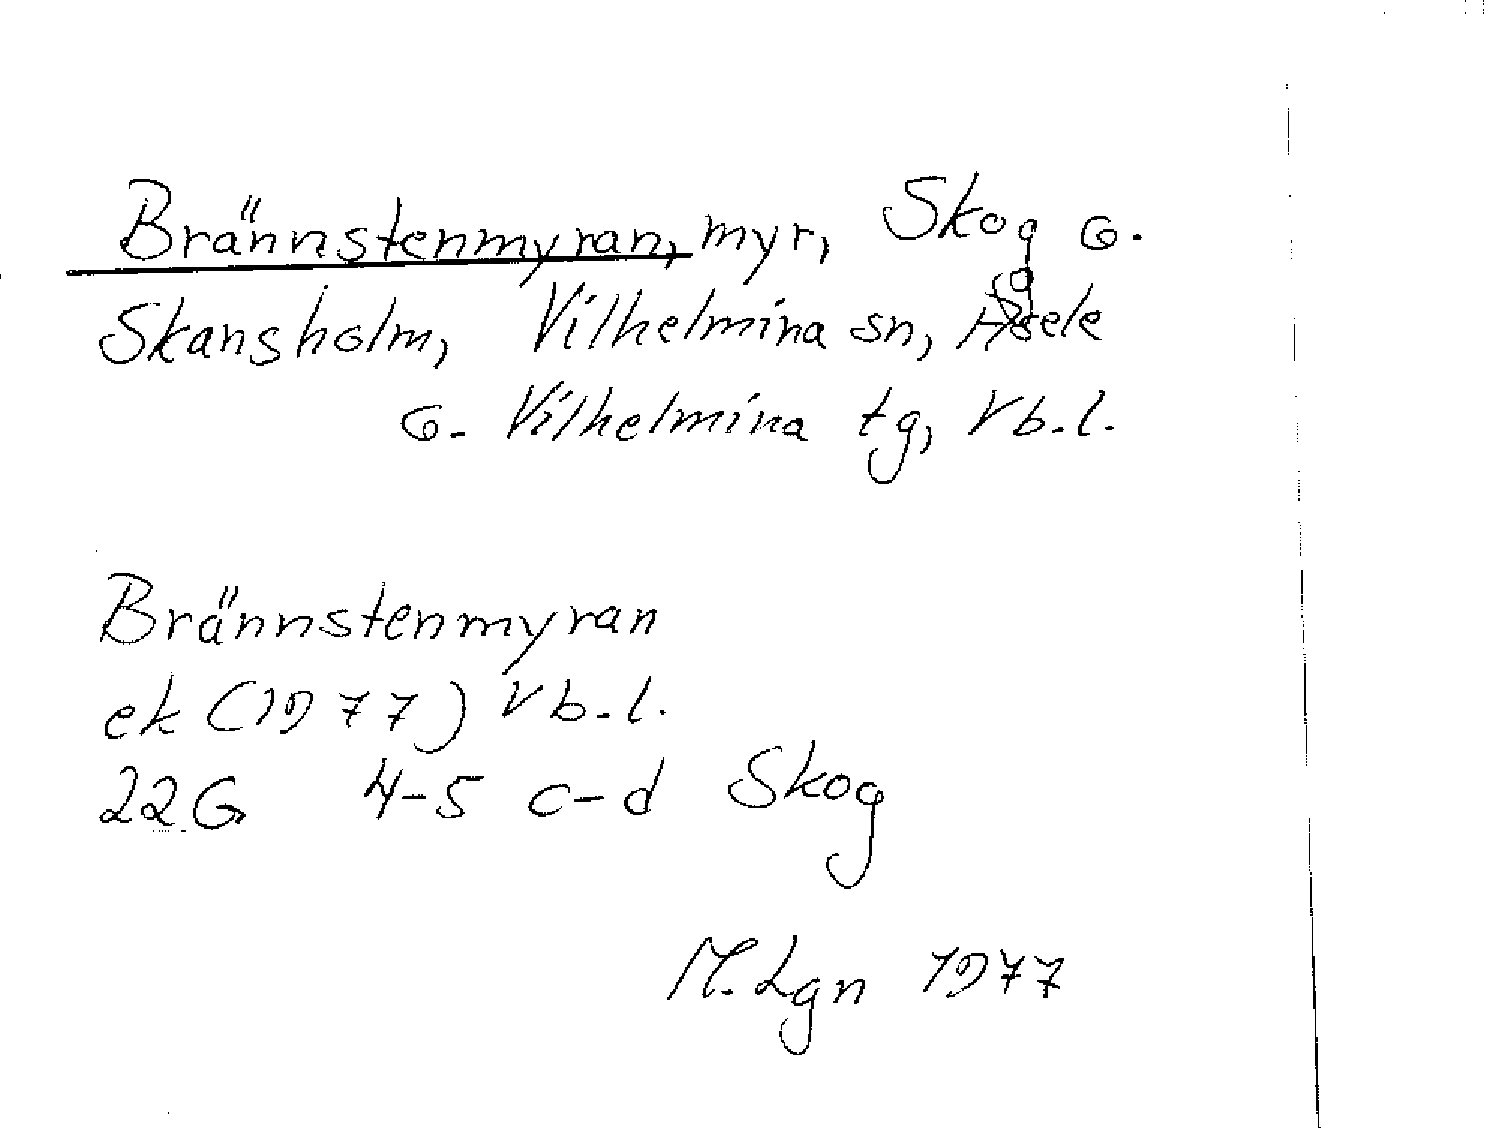 Brännstenmyran, myr, Skog o.
Skansholm, Vilhelmina sn, Åsele
o. Vilhelmina tg, Vb.l.
Brännstenmyran
ek (1977) Vb.l.
22G 4-5 c-d Skog
M. Lgn 1977